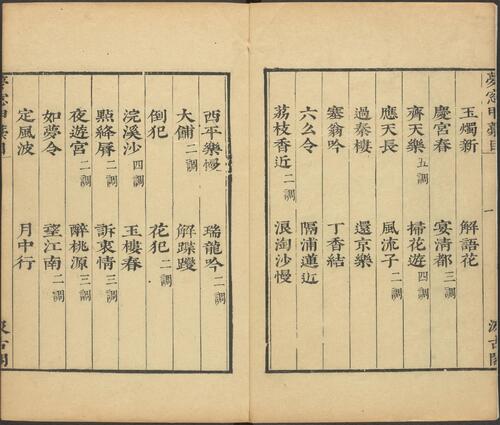 玉燭新 解語花
慶宮春 宴清都 三調
齊天樂 五調 掃花遊 四調
應天長 風流子 二調
過秦樓 還京樂
塞翁吟 丁香結
六幺令 隔浦蓮近
荔枝香近 二調 浪淘沙慢
西平樂慢 瑞龍吟 二調
大酺 二調 解蹀躞
倒犯 花犯 二調
浣溪沙 四調 玉樓春
點絳脣 二調 訴衷情 三調
夜遊宮 二調 醉桃源 三調
如夢令 望江南 二調
定風波 月中行